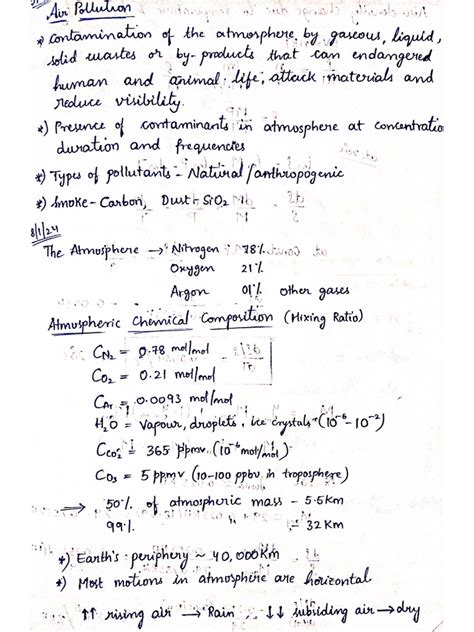 Air Pollution
*) Contamination of the atmosphere by gaseous, liquid,
solid wastes or by-products that can endangered
human and animal life, attack materials and
reduce visibility.
*) Presence of contaminants in atmosphere at concentration
duration and frequencies
*) Types of pollutants - Natural/anthropogenic
*) Smoke - Carbon, Dust - SiO2
8/1/24
The Atmosphere → Nitrogen 78%
Oxygen 21%
Argon 01% other gases
Atmospheric Chemical Composition (Mixing Ratio)
CN2 = 0.78 mol/mol
CO2 = 0.21 mol/mol
CAr = 0.0093 mol/mol
H2O = Vapour, droplets, Ice crystals (10^-6 - 10^-2)
CCO2 = 365 ppmv (10^-6 mol/mol)
CO3 = 5 ppmv (10-100 ppbv in troposphere)
⇒ 50% of atmospheric mass - 5.5Km
99% - 32 Km
*) Earth's periphery ~ 40,000Km
*) Most motions in atmosphere are horizontal
↑↑ rising air → Rain ↓↓ subsiding air → dry